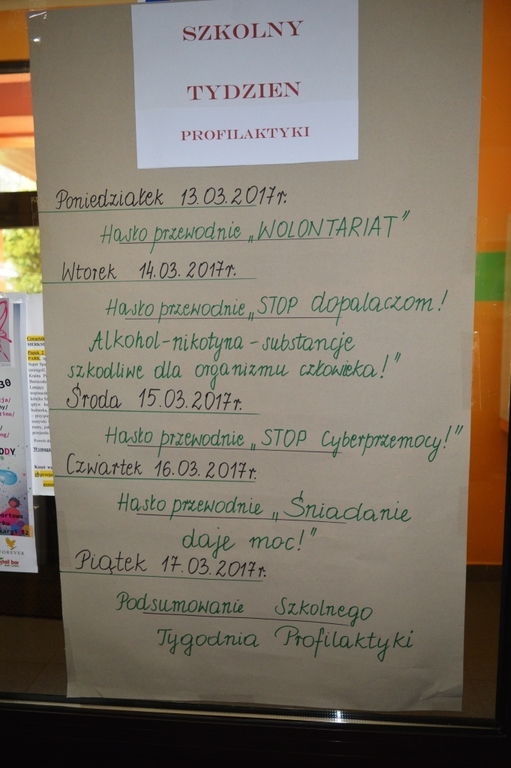 SZKOLNY
TYDZIEN
PROFILAKTYKI
Poniedziałek 13.03.2017r.
Hasło przewodnie „WOLONTARIAT”
Wtorek 14.03.2017r.
Hasło przewodnie „STOP dopalaczom!
Alkohol-nikotyna-substancje
szkodliwe dla organizmu człowieka!”
Środa 15.03.2017r.
Hasło przewodnie „STOP Cyberprzemocy!”
Czwartek 16.03.2017r.
Hasło przewodnie „Śniadanie
daje moc!”
Piątek 17.03.2017r.
Podsumowanie Szkolnego
Tygodnia Profilaktyki
30
ODY
FOREVER